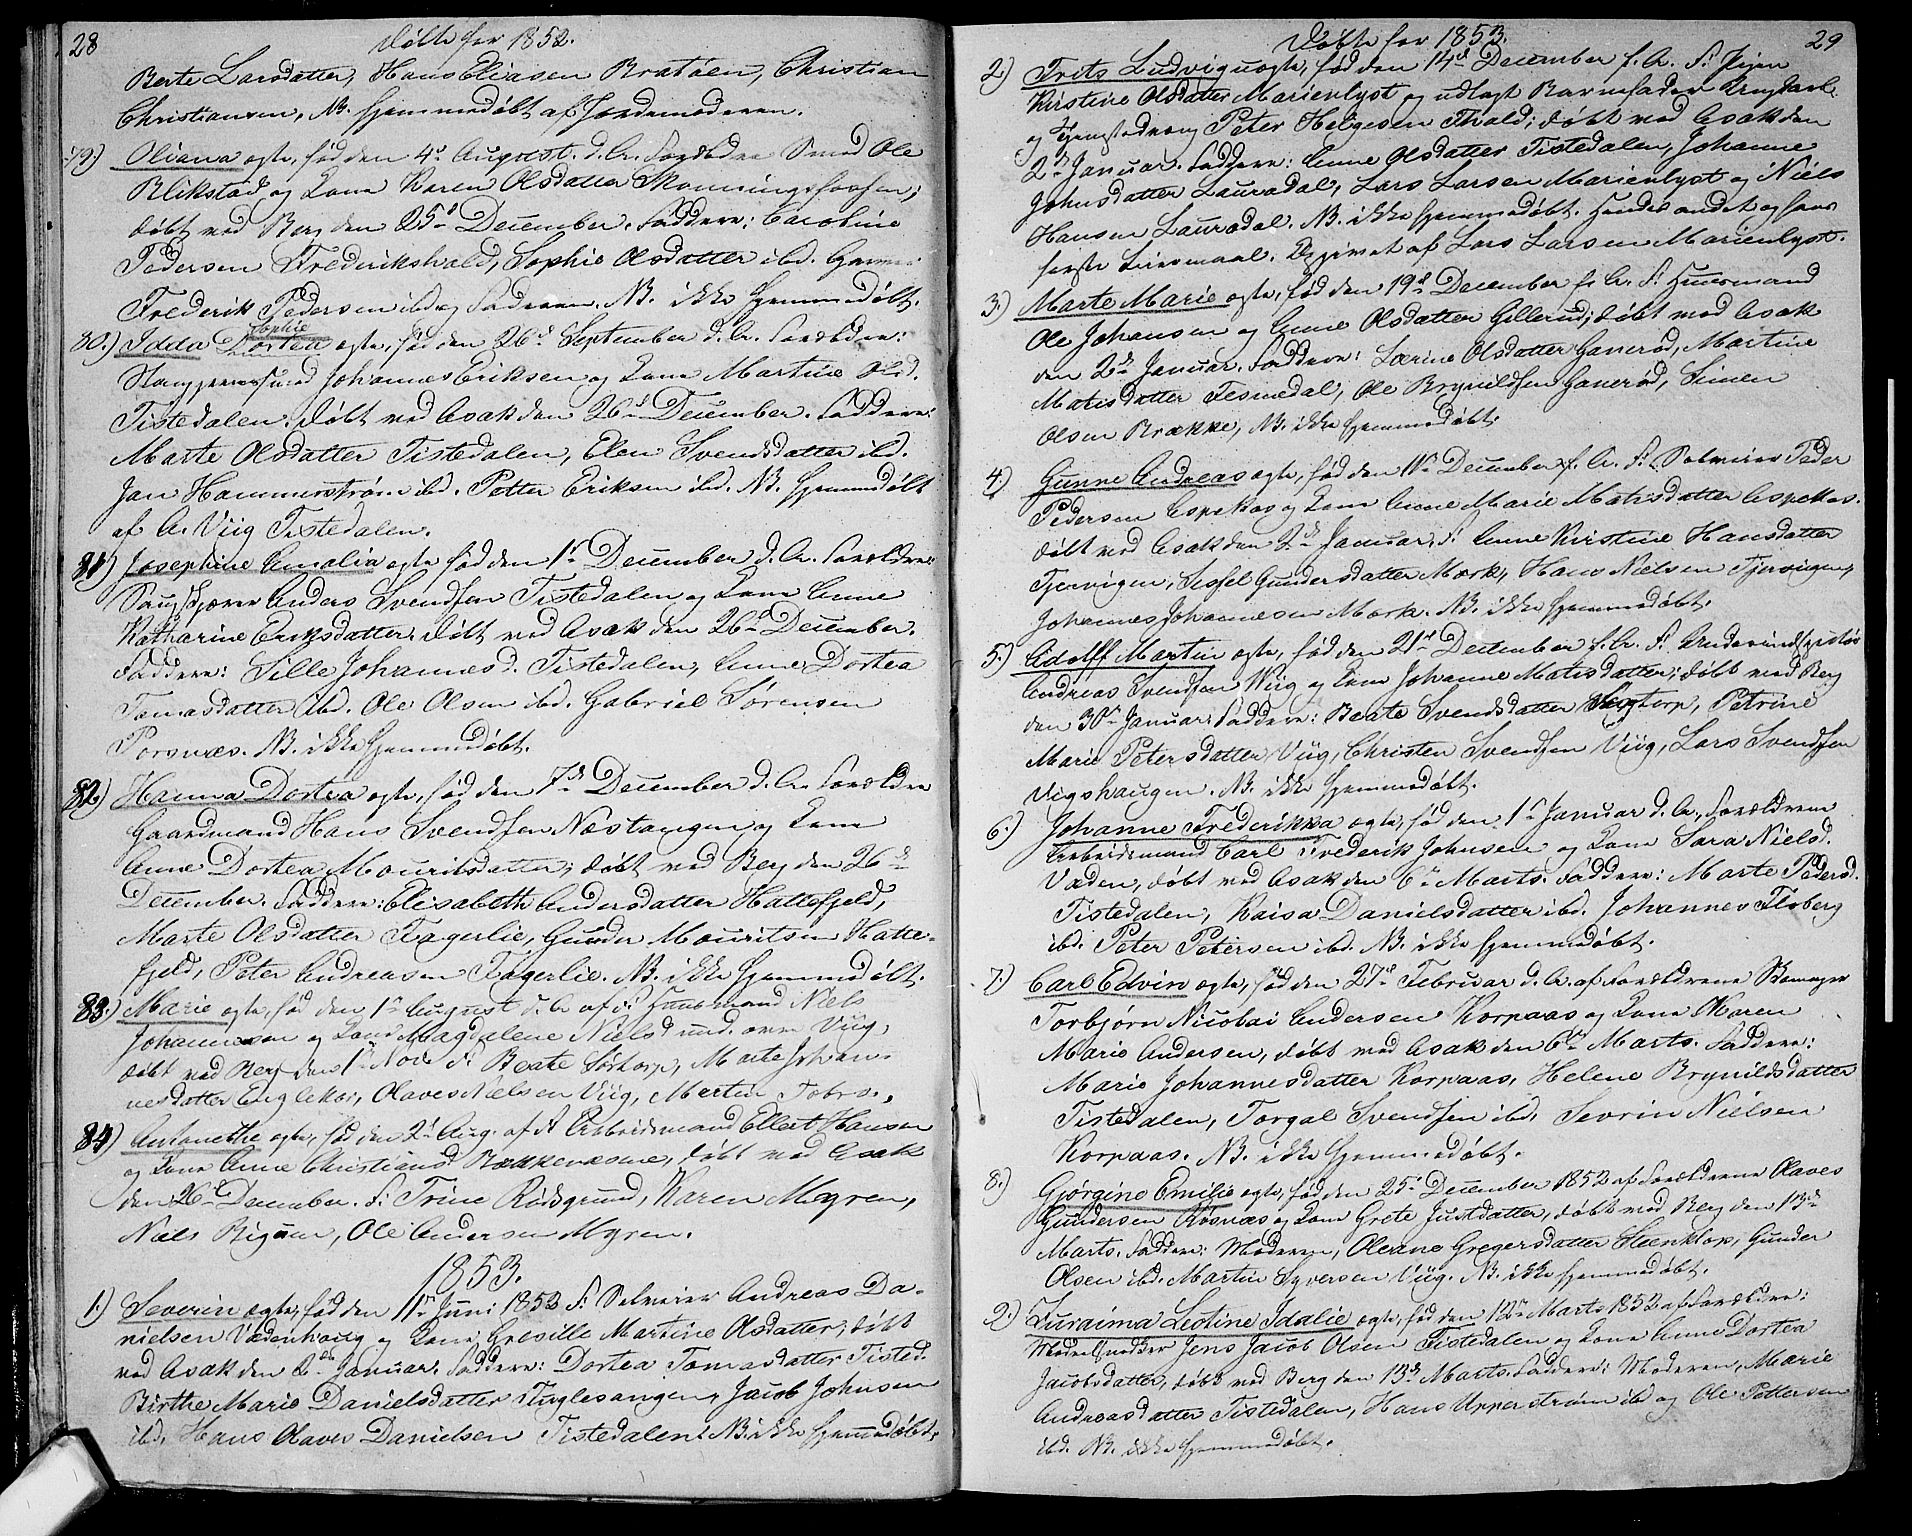 28
Døbte for 1852.
Berte Larsdatter, Hans Eliasen Bratøen, Christian
Christiansen, NB. hjemmedøbt af Jordemoderen.
79.) Oliana ægte, fød den 4de August d. A. Forældre Smed Ole
Blikstad og Kone Karen Olsdatter Skonningsfossen;
døbt ved Berg den 25de December. Faddere: Caroline
Pedersen Frederikshald, Sophie Olsdatter ibd.
Frederik Pedersen ibd og Faderen. NB. ikke hjemmedøbt.
80.) Idda Sophie Dortea ægte, fød den 26de September d. A. Forældre:
Johannes Eriksen og Kone Martine Olsd.
Tistedalen; døbt ved Asak den 26de December. Faddere:
Marte Olsdatter Tistedalen, Elen Svendsdatter ibd.
Jan Hammerstrøm ibd. Petter Eriksen ibd. NB. hjemmedøbt
af A. Viig Tistedalen.
81) Josephine Amalia ægte fød den 1ste December d. A. Forældre:
Saugskjærer Anders Svendsen Tistedalen og Kone Anne
Katharine Eriksdatter; døbt ved Asak den 26de December.
Faddere: Sille Johannesd. Tistedalen, Anne Dortea
Tomasdatter ibd. Ole Olsen ibd. Gabriel Sørensen
Porsnæs. NB. ikke hjemmedøbt.
82) Hanna Dortea ægte, fød den 7de December d. A. Forældre
Gaardmand Hans Svendsen Næstangen og Kone
Anne Dortea Mouritsdatter; døbt ved Berg den 26de
December. Faddere: Elisabeth Andersdatter Hattefjeld,
Marte Olsdatter Fagerlie, Gunder Mouritsen Hatte-
fjeld, Peter Andreasen Fagerlie. NB. ikke hjemmedøbt.
83.) Marie ægte, fød den 1ste August d. A. af F. Huusmand Niels
Johannesen og Kone Magdalene Nielsd. und. øvre Viig,
døbt ved Berg den 1ste Nov. F. Beate Sørtorp, Marte Johan-
nesdatter Englekor, Olaves Nielsen Viig, Martin
84) Antonethe ægte, fød den 2de Aug. af F. Arbeidsmand Ellert Hansen
og Kone Anne Christiansd. Bakkenæsene, døbt ved Asak
den 26de December. F. Trine Rødsgrund, Karen Myren,
Niels Ole Andersen Myren.
1853.
1.) Severin ægte, fød den 11te Juni 1852 F. Selveier Andreas Da-
nielsen Vædenhaug og Kone Gresille Martine Olsdatter; døbt
ved Asak den 2den Januar. Faddere: Dortea Tomasdatter Tisted.
Birthe Marie Danielsdatter Fuglesangen, Jacob Johnsen
ibd, Hans Olaves Danielsen Tistedalen. NB. ikke hjemmedøbt.
Døbte for 1853.
29
2.) Frits Ludvig uægte, fød den 14de December f. A. F. Pigen
Kirstine Olsdatter Marienlyst og udlagt Barnefader Ungkarl
og Peter Helgesen Thald; døbt ved Asak den
2den Januar. Faddere: Anne Olsdatter Tistedalen, Johanne
Johnsdatter Lauradal, Lars Larsen Marienlyst og Niels
Hansen Lauradal. NB. ikke hjemmedøbt. Hendes andet og hans
første Leiermaal. Opgivet af Lars Larsen Marienlyst.
3.) Marte Marie ægte, fød den 19de December f. A. F. Huusmand
Ole Johansen og Anne Olsdatter Gillerud; døbt ved Asak
den 2den Januar. Faddere: Lærine Olsdatter Ganerød, Martine
Matisdatter Tesmedal, Ole Brynildsen Ganerød, Simen
Olsen Brække, NB. ikke hjemmedøbt.
4.) Gunne Andreas ægte, fød den 11te December f. A. F. Selveier Peder
Pedersen Espekas og Kone Anne Marie Matisdatter Aspekas.
døbt ved Asak den 2den Januar. F. Anne Kirstine Hansdatter
Tjervigen, Sissel Gundersdatter Mørk, Hans Nielsen Tjervigen,
Johannes Johannesen Mørk. NB. ikke hjemmedøbt.
5.) Adolff Martin ægte, fød den 21de December f. A. F.
Andreas Svendsen Viig og Kone Johanne Matisdatter; døbt ved Berg
den 30te Januar. Faddere: Beate Svendsdatter Sørtorp, Petrine
Marie Petersdatter Viig, Christen Svendsen Viig, Lars Svendsen
Vigshaugen. NB. ikke hjemmedøbt.
6.) Johanne Frederikka ægte, fød den 1ste Januar d. A., Forældrene
Arbeidsmand Carl Frederik Johnsen og Kone Sara Nielsd.
Væden, døbt ved Asak den 6te Marts. Faddere: Marte Pedersd.
Tistedalen, Kaisa Danielsdatter ibd. Johannes Floberg
ibd. Peter Petersen ibd. NB. ikke hjemmedøbt.
7.) Carl Edvin ægte, fød den 27de Februar d. A. af Forældrene Skomager
Torbjørn Nicolai Andersen Korpaas og Kone Maren
Marie Andersen, døbt ved Asak den 6te Marts. Faddere:
Marie Johannesdatter Korpaas, Helene Brynildsdatter
Tistedalen, Torgal Svendsen ibd. Sevrin Nielsen
Korpaas. NB. ikke hjemmedøbt.
8.) Gjørgine Emilie ægte, fød den 25de December 1852 af Forældrene Olaves
Gundersen Røsnæs og Kone Grete Justdatter, døbt ved Berg den 13de
Marts. Faddere: Moderen, Oleane Gregersdatter Steenklop, Gunder
Olsen ibd. Martin Syversen Viig. NB. ikke hjemmedøbt.
2.) Zuraima Leotine Idalie ægte, fød den 12te Marts 1852 af Forældre:
Jens Jacob Olsen Tistedalen og Kone Anne Dortea
Jacobsdatter, døbt ved Berg den 13de Marts. Faddere: Moderen, Marie
Andreasdatter Tistedalen, Hans Upperstrøm ibd og Ole Pettersen
ibd. NB. ikke hjemmedøbt.